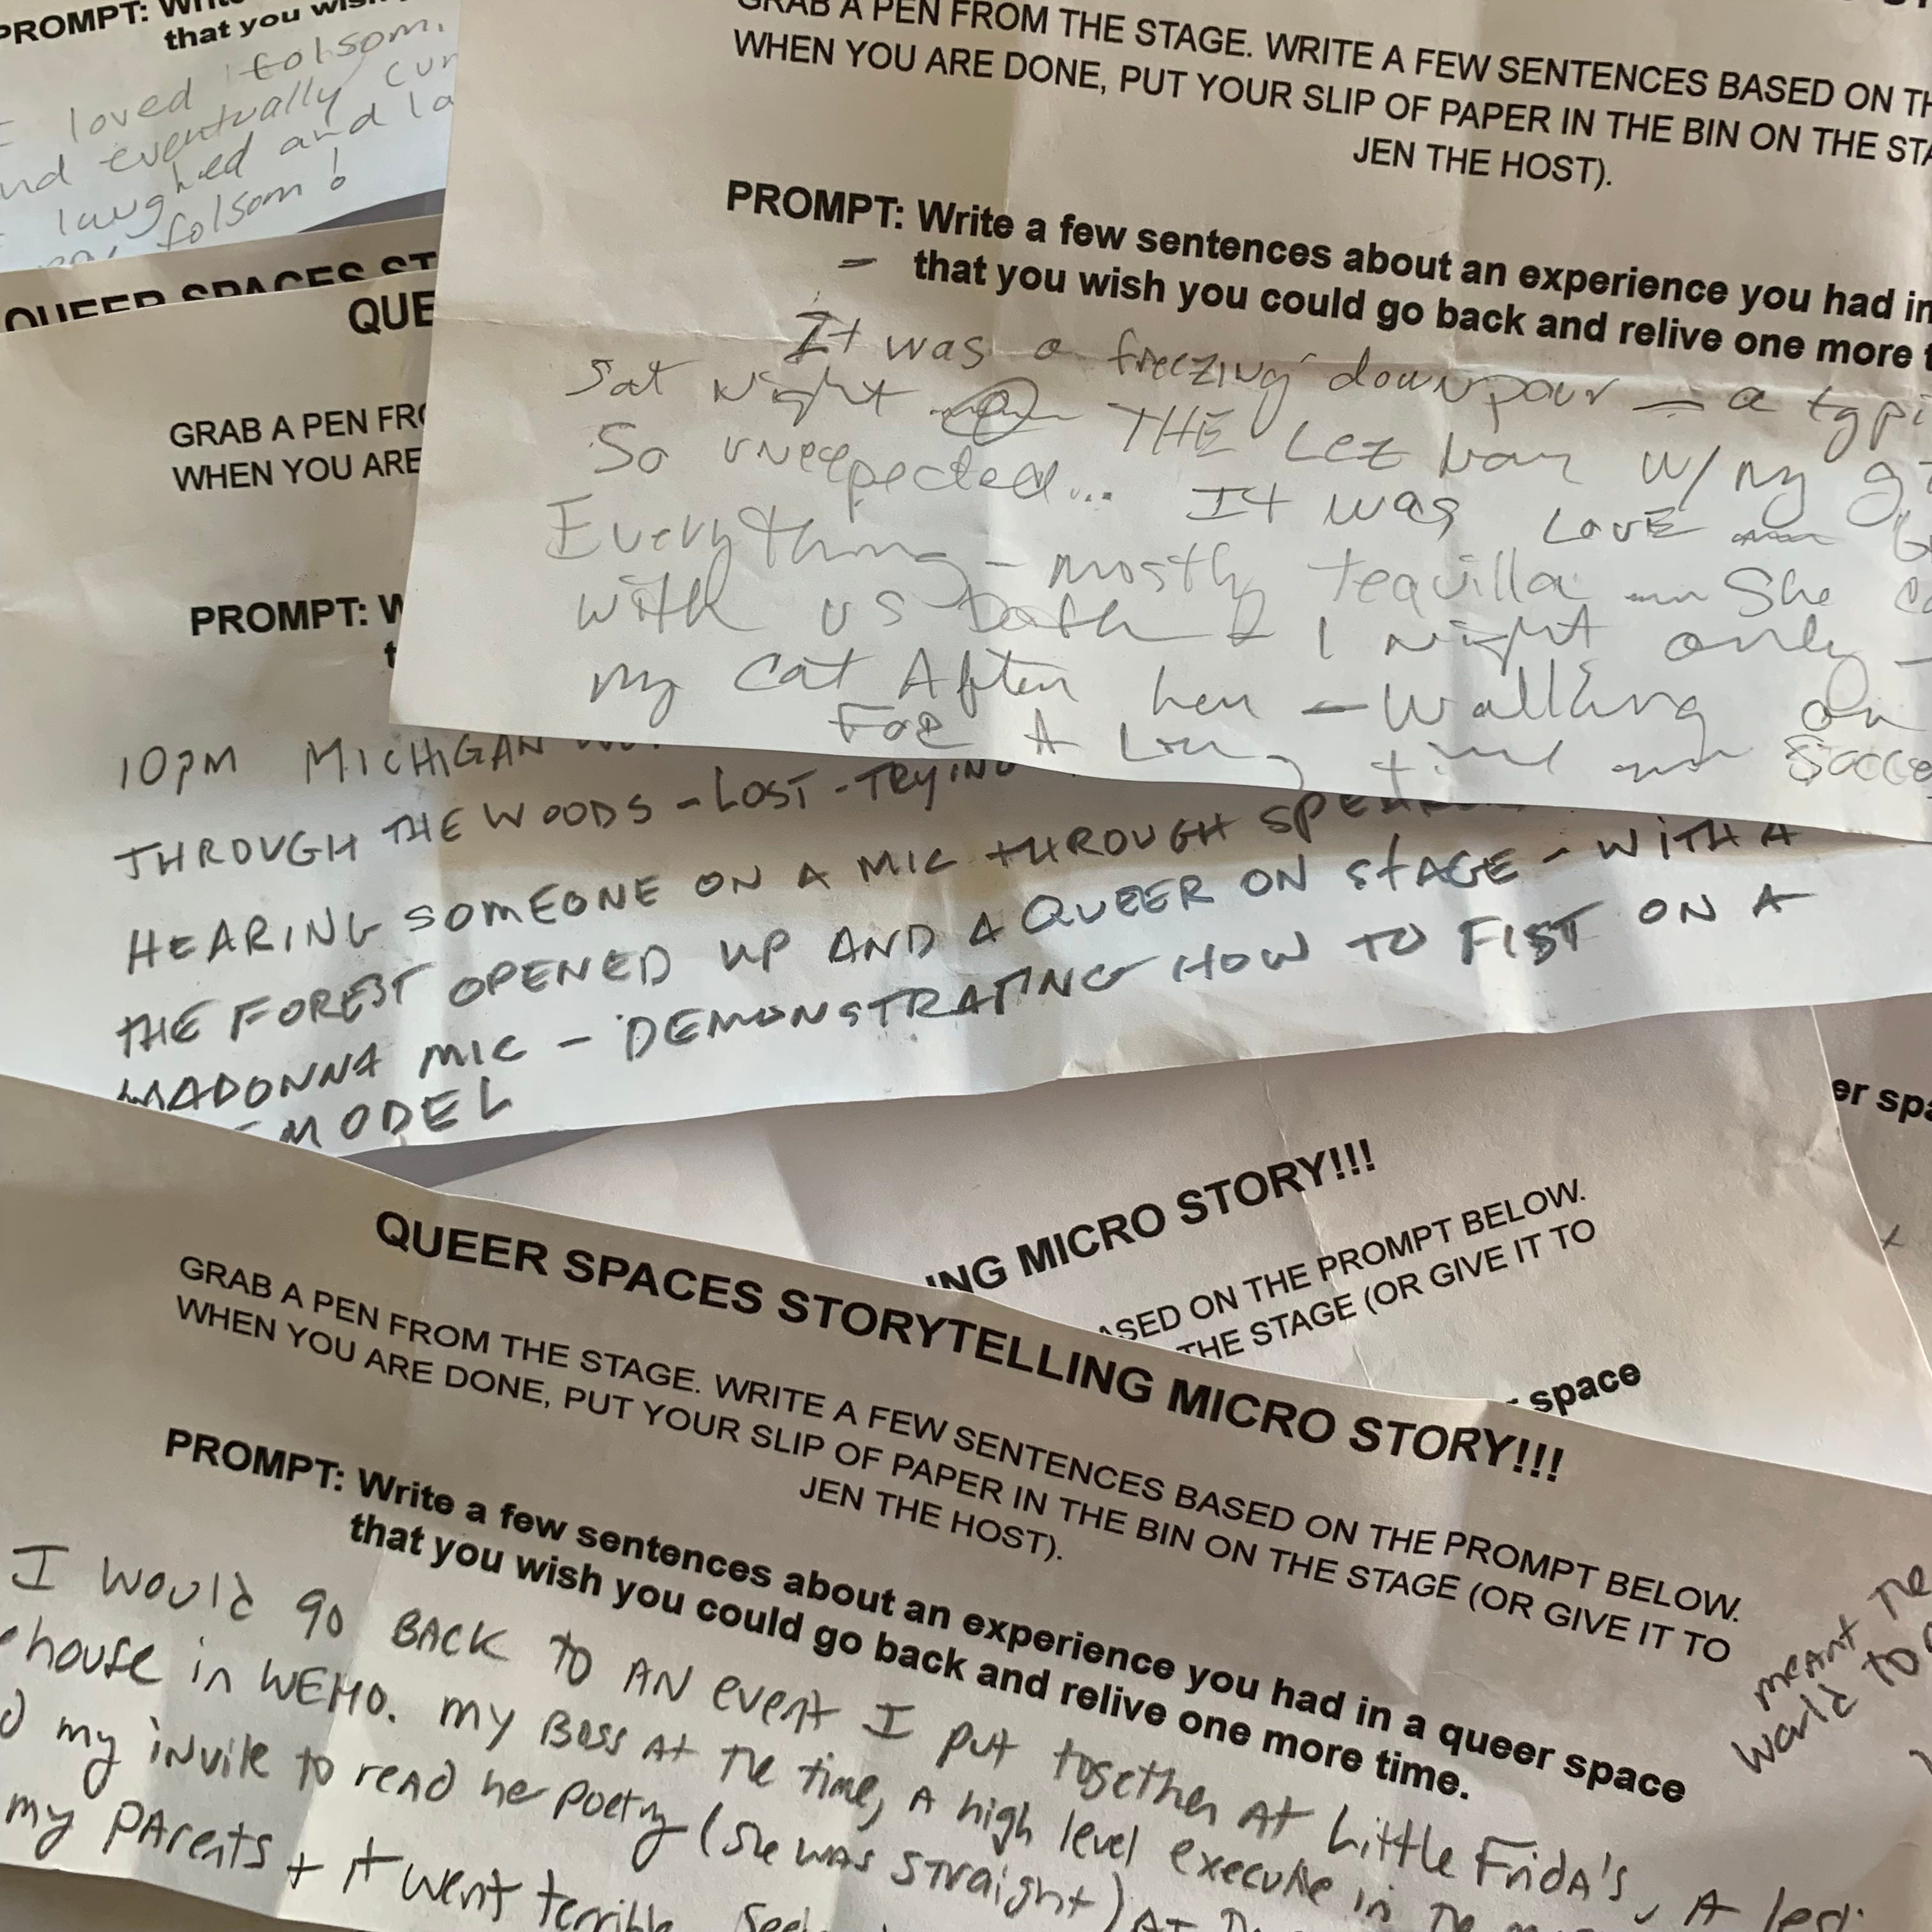 PROMPT: Write
that you wis
loved folsom.
nd eventually cur
laughed and la
folsom!
QUEER SPACES ST
GRAB A PEN FROM THE STAGE. WRITE A FEW SENTENCES BASED ON TH
WHEN YOU ARE DONE, PUT YOUR SLIP OF PAPER IN THE BIN ON THE STA
JEN THE HOST).
PROMPT: Write a few sentences about an experience you had in
that you wish you could go back and relive one more t
It was a freezing downpour — a typi
Sat Night @ THE Lez bar w/ my g
So unexpected... It was LOVE
Everything - mostly tequilla — She
with us both & 1 night only -
my cat After her - Walking on
For A Long time
QUE
GRAB A PEN FRO
WHEN YOU ARE
PROMPT: W
t
10PM MICHIGAN
THROUGH THE WOODS - LOST - TRYING
HEARING SOMEONE ON A MIC THROUGH SPEAK
THE FOREST OPENED UP AND A QUEER ON STAGE - WITH A
MADONNA MIC - DEMONSTRATING HOW TO FIST ON A
MODEL
er spa
ING MICRO STORY!!!
ASED ON THE PROMPT BELOW.
THE STAGE (OR GIVE IT TO
space
QUEER SPACES STORYTELLING MICRO STORY!!!
GRAB A PEN FROM THE STAGE. WRITE A FEW SENTENCES BASED ON THE PROMPT BELOW.
WHEN YOU ARE DONE, PUT YOUR SLIP OF PAPER IN THE BIN ON THE STAGE (OR GIVE IT TO
JEN THE HOST).
PROMPT: Write a few sentences about an experience you had in a queer space
that you wish you could go back and relive one more time.
I would go BACK TO AN event I put together At Little Frida's, A lesb
ehouse in WEHO. my Boss At the time, A high level executive in the
my invite to read her poetry (she was straight) AT
my PArents + it went terrible.
meant the
world to